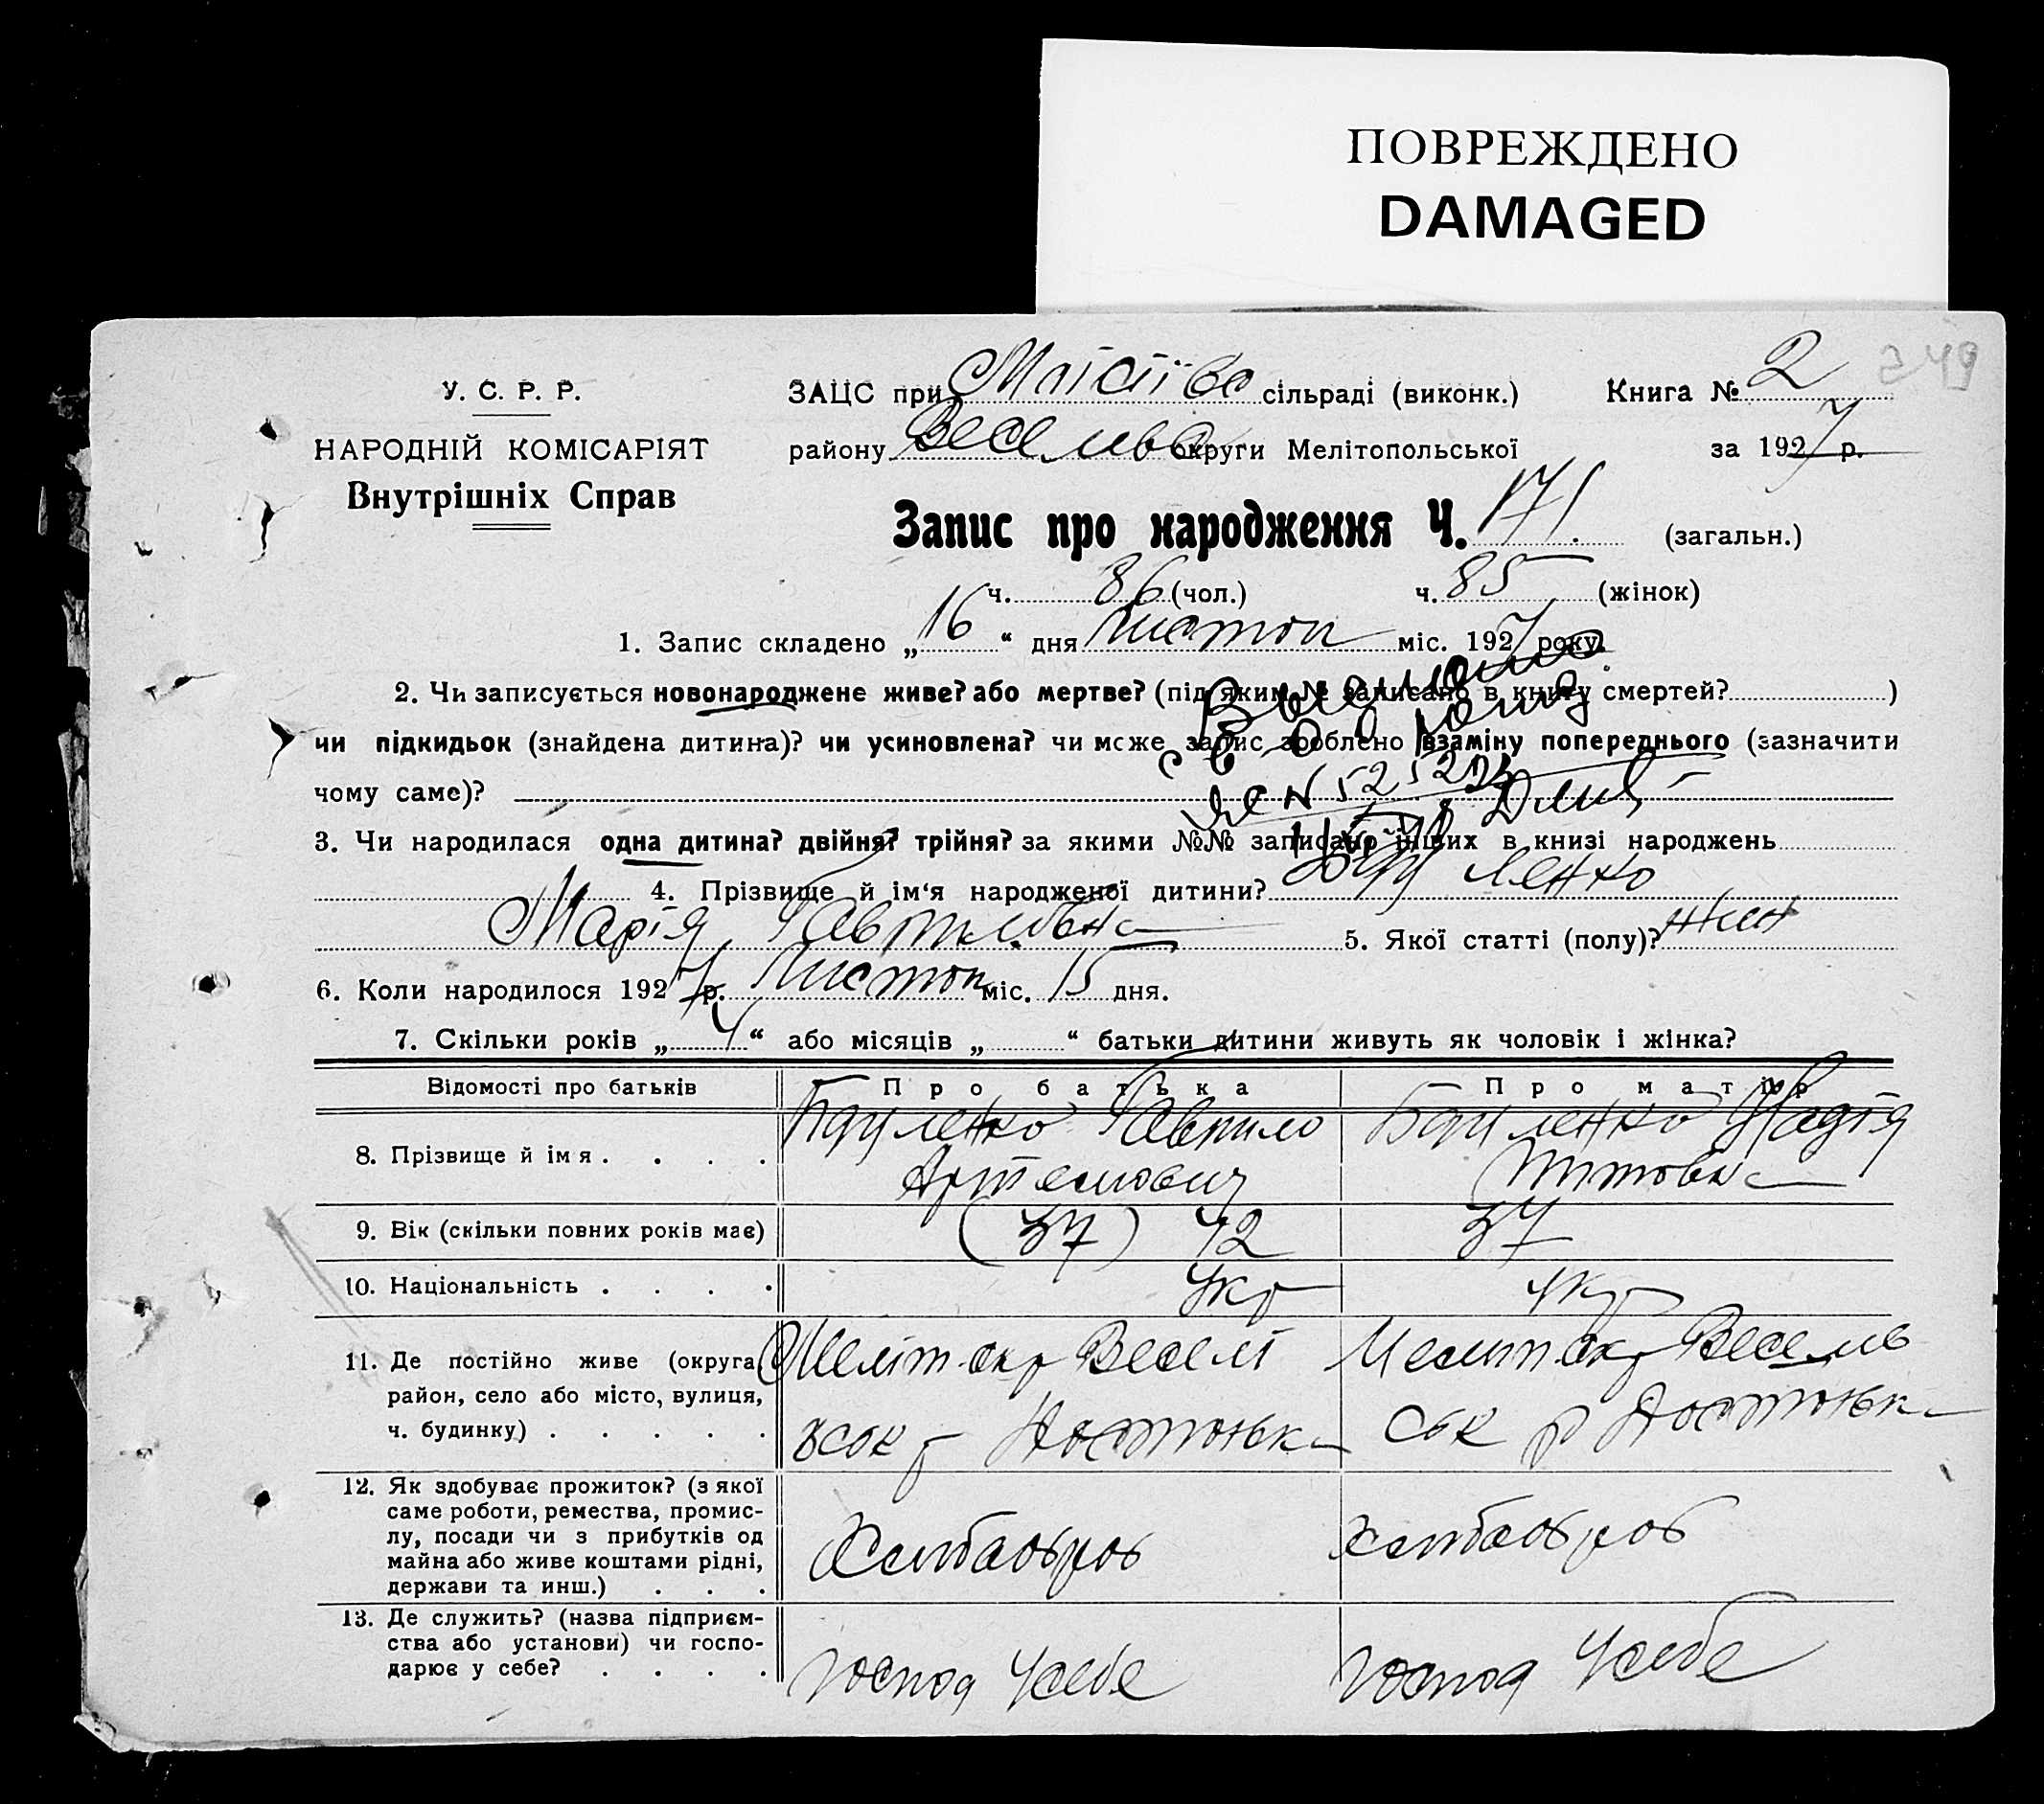 ПОВРЕЖДЕНО
DAMAGED
У. С. Р. Р.
НАРОДНІЙ КОМІСАРІЯТ
Внутрішніх Справ
ЗАЦС при сільраді (виконк.) Книга № 2 249
району Весельво округи Мелітопольської за 1927 р.
Запис про народження Ч. 171. (загальн.)
ч. 86 (чол.) ч. 85 (жінок)
1. Запис складено „16“ дня Листоп міс. 1927 року.
2. Чи записується новонароджене живе? або мертве? (під яким № записано в книгу смертей? )
чи підкидьок (знайдена дитина)? чи усиновлена? чи може запис зроблено взаміну попереднього (зазначити
чому саме)?
3. Чи народилася одна дитина? двійня? трійня? за якими №№ записано інших в книзі народжень
4. Прізвище й ім‘я народженої дитини?
Марія Гаврилівна 5. Якої статті (полу)? жин
6. Коли народилося 1927 р. Листоп міс. 15 дня.
7. Скільки років „ “ або місяців „ “ батьки дитини живуть як чоловік і жінка?
Відомості про батьків Про батька Про матір
8. Прізвище й ім я . . . . Гаврило Надія
Артемович Титовна
9. Вік (скільки повних років має) (37) 42 37
10. Національність . . . . Укр Укр
11. Де постійно живе (округа, Меліт окр Веселі Мелит окр Весельв
район, село або місто, вулиця,
ч. будинку) . . . . . ськ р
12. Як здобуває прожиток? (з якої
саме роботи, ремества, промис-
лу, посади чи з прибутків од
майна або живе коштами рідні, Хлібаороб хлібаороб
держави та инш.) . . .
13. Де служить? (назва підприєм-
ства або установи) чи госпо-
дарює у себе? . . . . Господ Усебе Господ Усебе